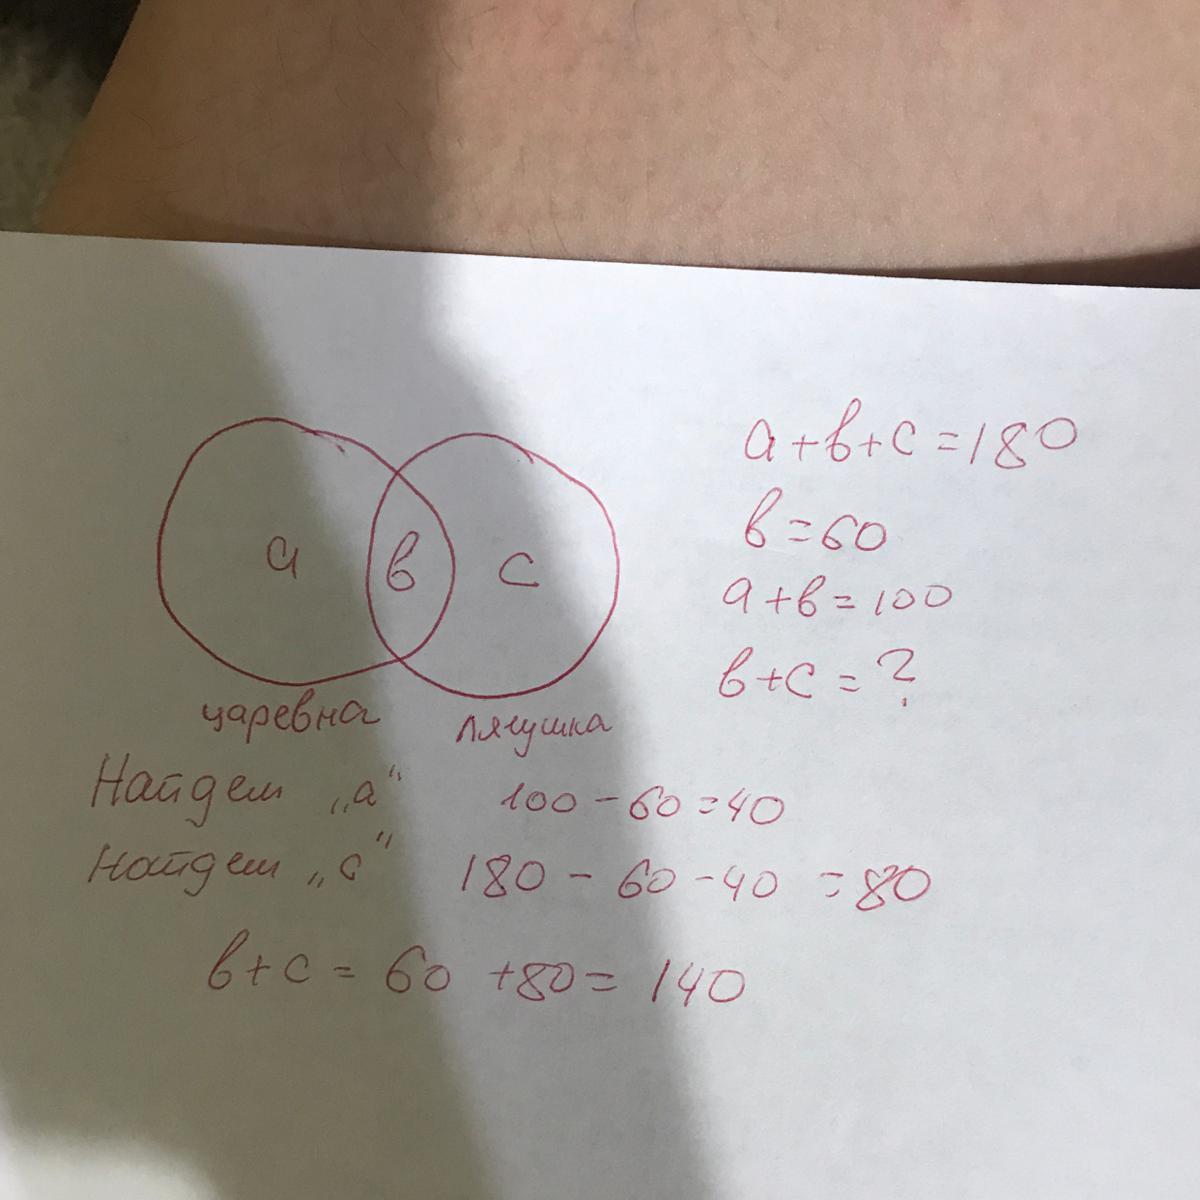 а
в
с
царевна
лягушка
а+в+с=180
в=60
а+в=100
в+с=?
Найдем „а“ 100-60=40
Найдем „с“ 180-60-40=80
в+с=60+80=140